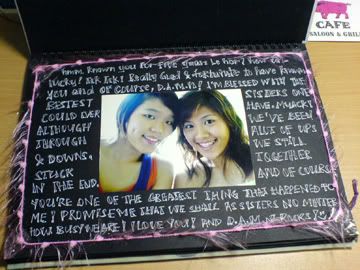 CAFE
SALOON & GRILL
hmm. Known you for five years le hor? how ar..
lucky! Really Glad & fortunate to have known
you and of course, D.A.M.N! I'm blessed with the
BESTEST SISTERS ONE
COULD EVER HAVE. MWACK!
ALTHOUGH WE'VE BEEN
THROUGH ALOT OF UPS
& DOWNS, WE STILL
STUCK TOGETHER
IN THE END. AND OF COURSE
YOU'RE ONE OF THE GREATEST THING THAT HAPPENED TO
ME! PROMISE ME THAT WE SHALL AS SISTERS NO MATTER
HOW BUSY WE ARE! I LOVE YOU! AND D.A.M.N ROCKS!